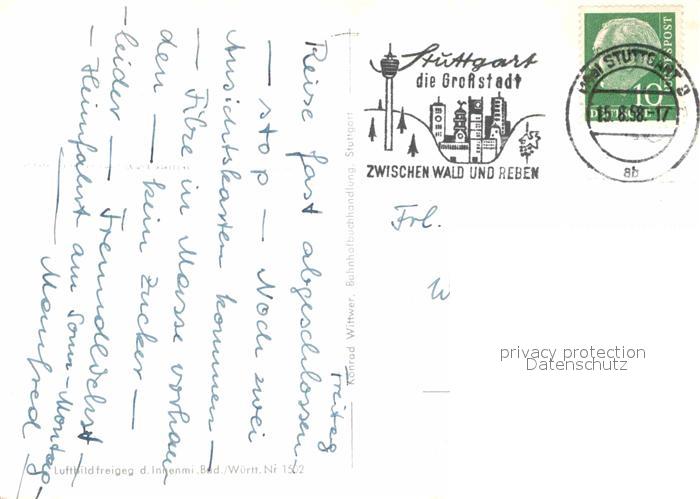 Freitag
Reise fast abgeschlossen –
– stop – Noch zwei
Ansichtskarten kommen –
– Filze in Masse vorhan
den – kein Zucker –
– leider – Fremdledchst –
– Heimfahrt am Sonn-Montag –
– Manfred –
Konrad Wittwer, Bahnhofbuchhandlung, Stuttgart
Luftbild freigeg. d. Innenmi. Bad./Württ. Nr 1502
Stuttgart
die Großstadt
ZWISCHEN WALD UND REBEN
STUTTGART 9
15.8.58.-17
ab
10
Frl.
W
privacy protection
Datenschutz